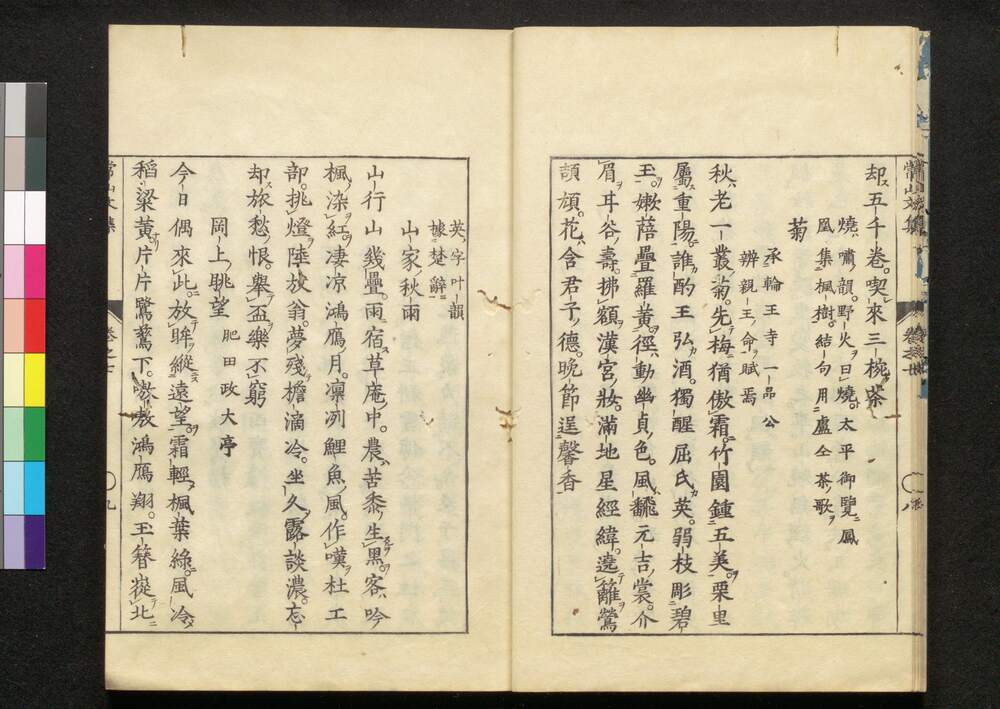 却五千卷。喫來三椀茶
燒。嘯韻。野火曰燒。太平御覽。鳳
凰集楓樹。結句用盧仝茶歌
菊
承輪王寺一品公
辨親王命賦焉
秋老一叢菊。先梅猶傲霜。竹園鍾五美。栗里
屬重陽。誰酌王弘酒。獨醒屈氏英。弱枝彫碧
玉。嫩蓓疊羅黃。徑動幽貞色。風飜元吉裳。介
眉耳谷壽。拂額漢宮妝。滿地星經緯。遶籬鶯
頡頏。花含君子德。晚節逞馨香
英字叶韻
據楚辭
山家秋雨
山行山幾疊。雨宿草庵中。農苦黍生黑。客吟
楓染紅。凄凉鴻鴈月。凜冽鯉魚風。作嘆杜工
部。挑燈陸放翁。夢殘檐滴冷。坐久露談濃。忘
却旅愁恨。擧盃樂不窮
岡上眺望
肥田政大亭
今日偶來此。放眸縱遠望。霜輕楓葉綠。風冷
稻粱黃。片片鷺鶿下。嗷嗷鴻鴈翔。玉簪嶷北
常山文集
卷之廿
九
常山文集
八